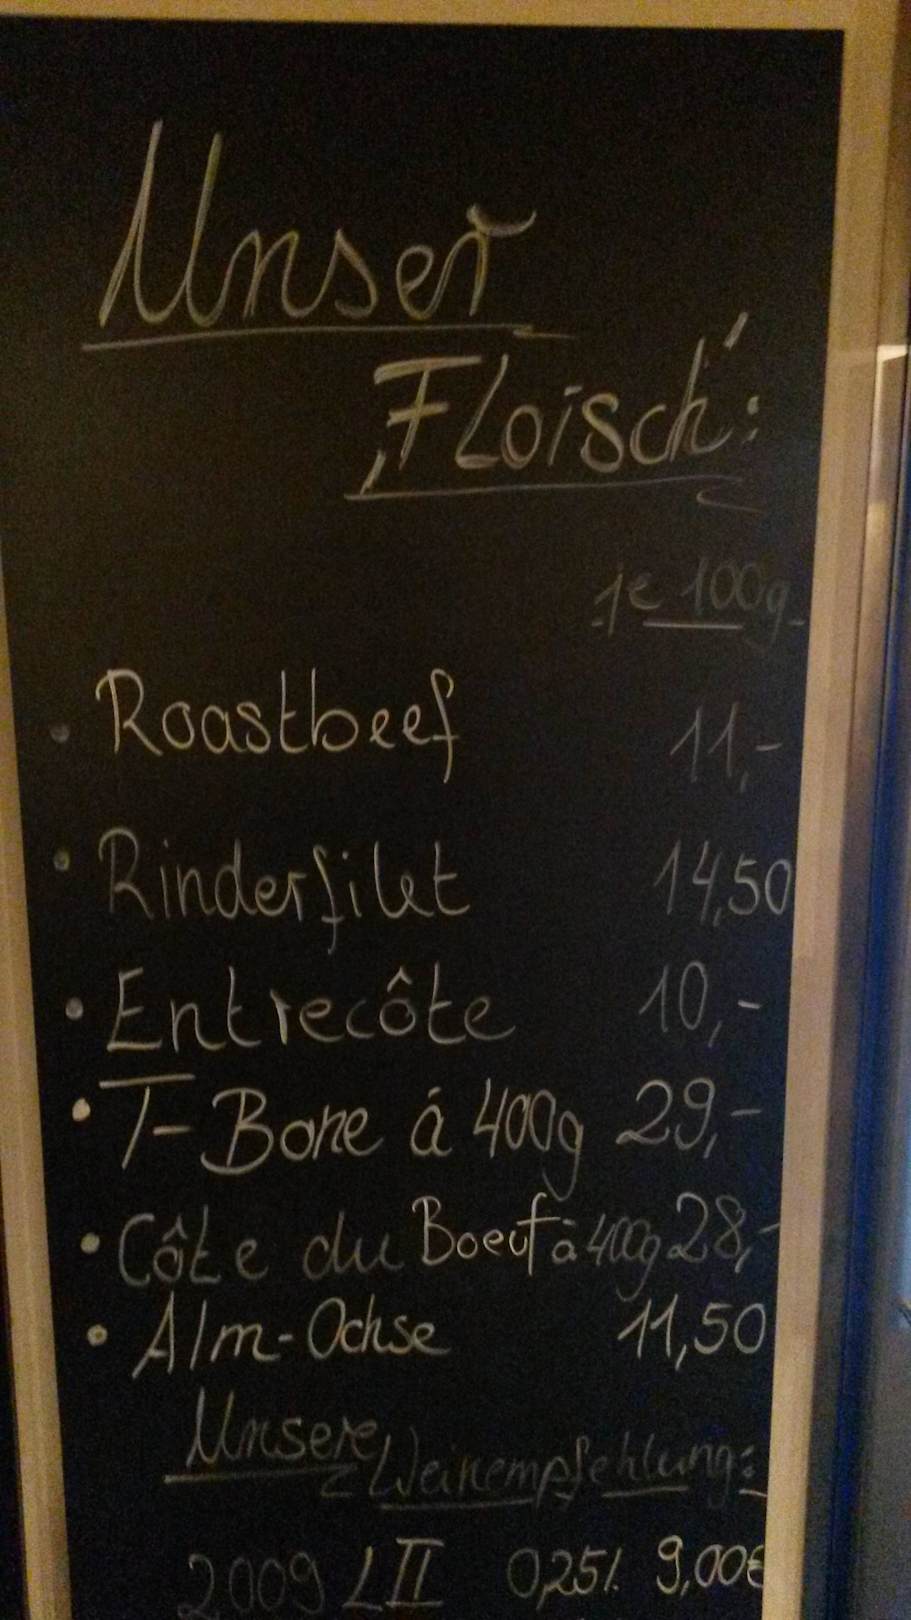 Unser
‚Floisch':
je 100g
• Roastbeef 11,-
• Rinderfilet 14,50
• Entrecôte 10,-
• T-Bone á 400g 29,-
• Côte du Boeuf à 400g 28,-
• Alm-Ochse 11,50
Unsere Weinempfehlung:
2009 LII 0,25l. 9,00€